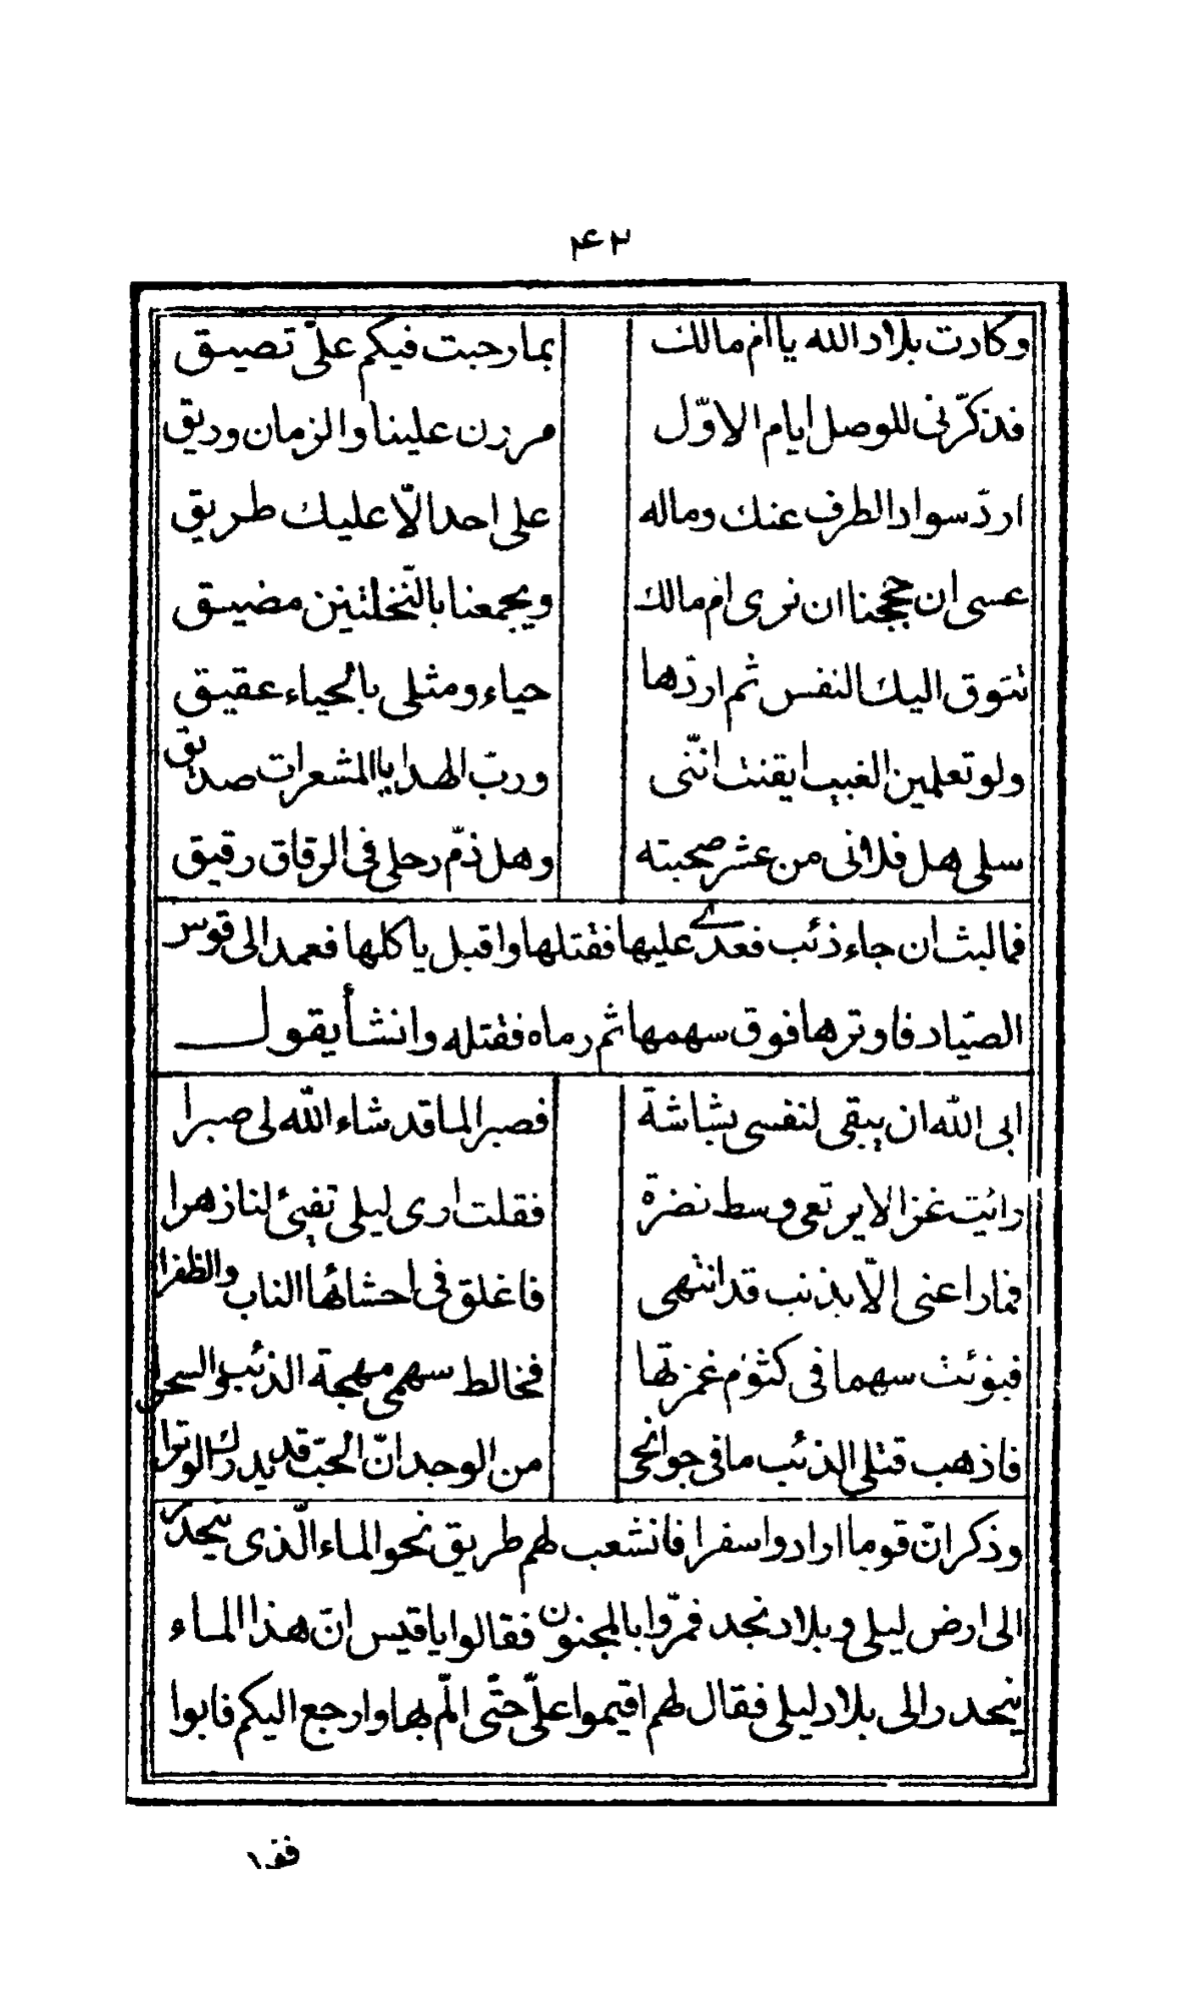 ۴۲
وكادت بلاد الله يا ام مالك بما رحبت فيكم علىّ تصيق
فذكّرنى للوصل ايام الاوّل مررن علينا والزمان وريق
اردّ سواد الطرف عنك وماله على احد الّا عليك طريق
عسى ان حججنا ان نرى ام مالك ويجمعنا بالنّخلتين مضيق
تتوق اليك النفس ثم اردّها حياء ومثلى بالحياء عقيق
ولو تعلمين الغيب ايقنت انّنى وربّ الهدايا المشعرات صديق
سلى هل قلانى من عشر صحبته وهل ذمّ رحلى فى الرقاق رقيق
فما لبث ان جاء ذئب فعدى عليها فقتلها واقبل ياكلها فعمد الى قوس
الصيّاد فاوترها فوق سهمها ثم رماه فقتله وانشأ يقول
ابى الله ان يبقى لنفسى بشاشة فصبرا لما قد شاء الله لى صبرا
رائيت غزالا يرتعى وسط نضرة فقلت ارى ليلى تفيئ لنا زهرا
فما راعنى الّا بذنب قد انتهى فاغلق فى احشائها الناب والظفرا
فبوئت سهما فى كثوم غمزتها فخالط سهمى مهجة الذئب والسحر
فاذهب قتلى الذئب ما فى جوانحى من الوجد انّ الحبّ قد يدرك الوترا
وذكر انّ قوما ارادوا سفرا فانشعب لهم طريق نحو الماء الّذى ينحدر
الى ارض ليلى وبلاد نجد فمرّوا بالمجنون فقالوا يا قيس انّ هذا الماء
ينحدر الى بلاد ليلى فقال لهم اقيموا علىّ حتّى المّ بها وارجع اليكم فابوا